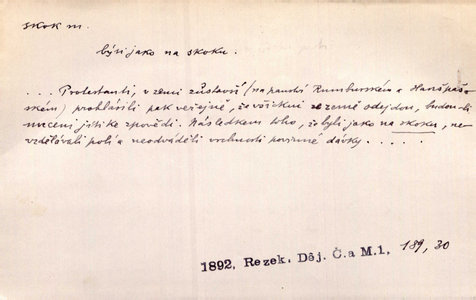 skok m.
býti jako na skoku.
. . . Protestanti, v zemi zůstavší (na panství Rumburském a Hanšpaš-
ském) prohlásili pak veřejně, že všickni ze země odejdou, budou-li
nuceni jíti ke zpovědi. Následkem toho, že byli jako na skoku, ne-
vzdělávali polí a neodváděli vrchnosti povinné dávky . . . . .
1892, Rezek, Děj. Č. a M. 1, 189, 30